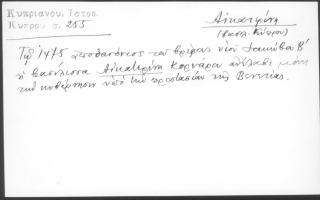 Κυπριανου, Ιστορ.
Κυπρου σ. 255
Αἰκατερίνη
(βασίλ. Κύπρου)
Τῷ 1475 ἀποθανόντος τοῦ βρέφους υἱοῦ Ἰακώβου Β'
ἡ βασίλισσα Αἰκατερίνη Κορνάρο ἀνέλαβε μόνη
τὴν κυβέρνησιν ὑπὸ τὴν προστασίαν τῆς Βενετίας.